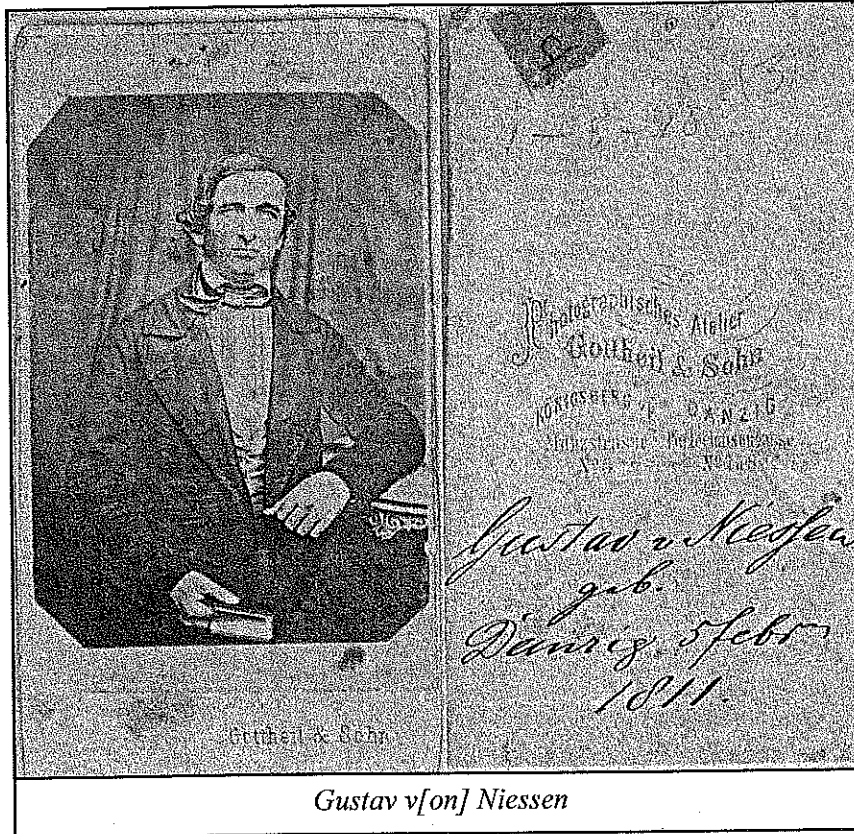 Gottheil & Sohn
Photographisches Atelier
Gottheil & Sohn
KÖNIGSBERG DANZIG
Gustav v Niessen
geb.
Danzig. 5 febr
1811.
Gustav v[on] Niessen